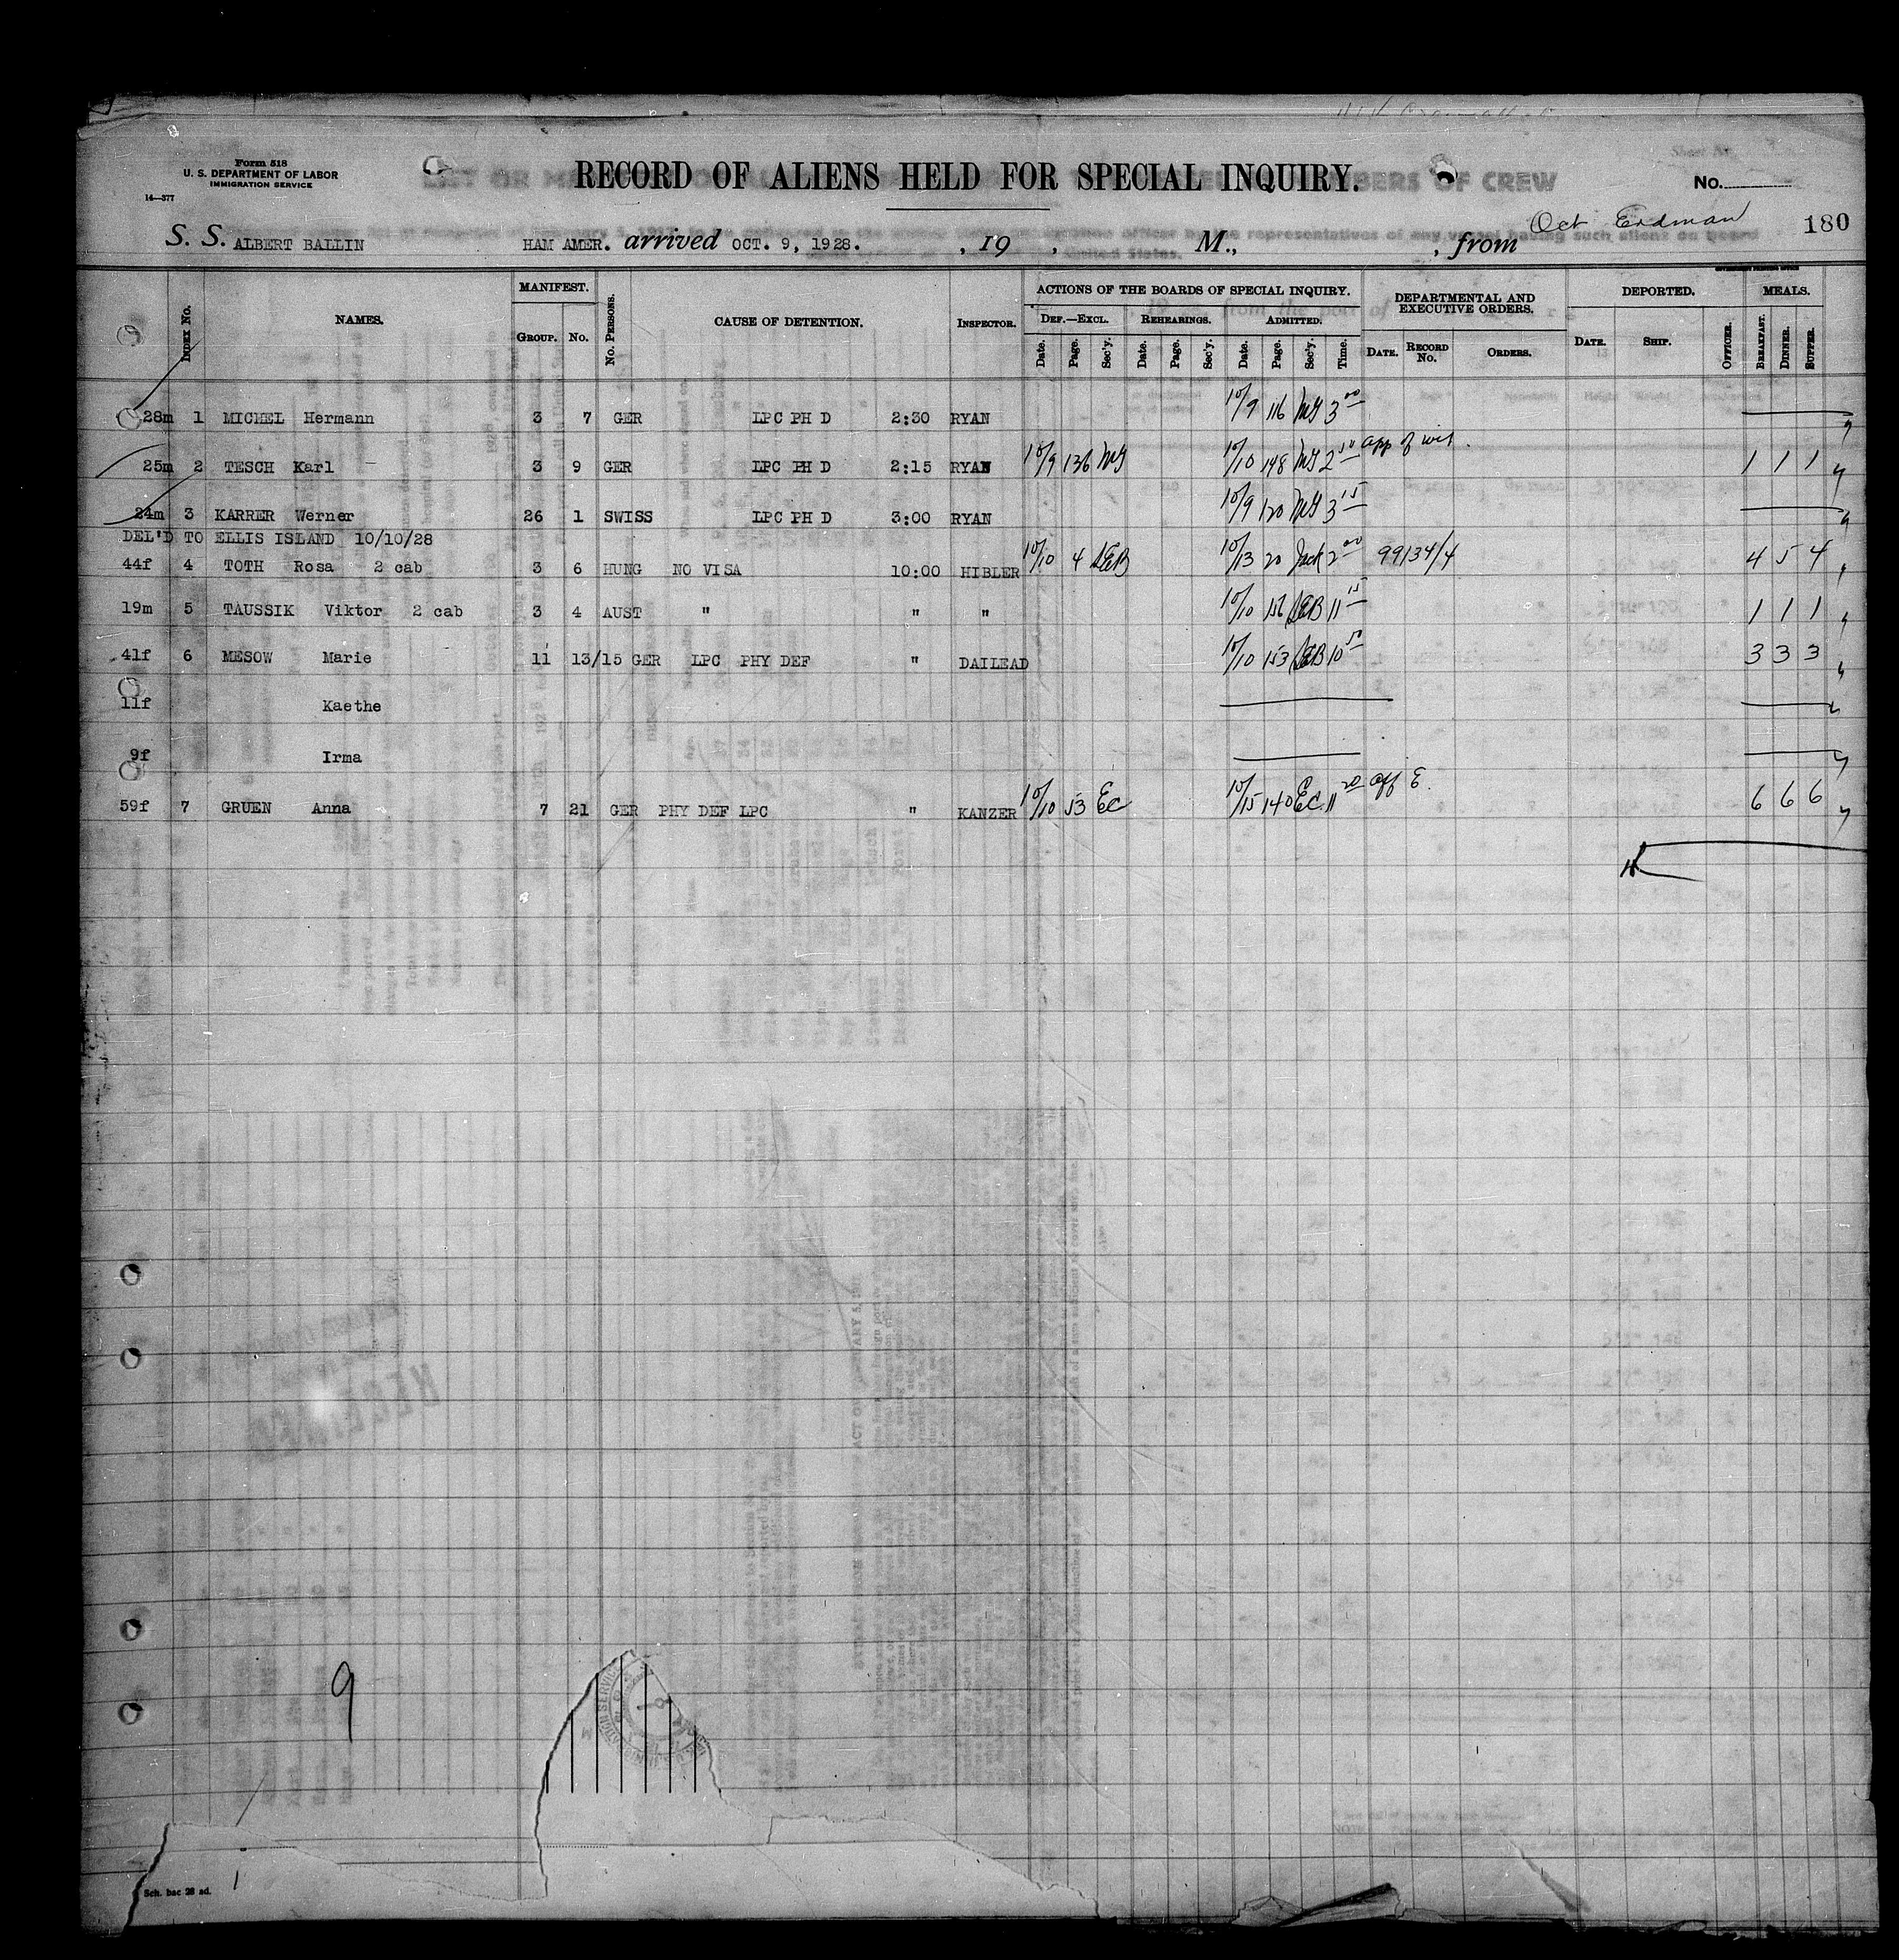 Form 518
U. S. DEPARTMENT OF LABOR
IMMIGRATION SERVICE
14—377
RECORD OF ALIENS HELD FOR SPECIAL INQUIRY.
No.
S. S. ALBERT BALLIN HAM AMER. arrived OCT. 9, 1928. , 19 , M., , from Oct Erdman 180
Index No. NAMES. MANIFEST. Group. No. No. Persons. CAUSE OF DETENTION. Inspector. ACTIONS OF THE BOARDS OF SPECIAL INQUIRY. Def.—Excl. Date. Page. Sec'y. Rehearings. Date. Page. Sec'y. Admitted. Date. Page. Sec'y. Time. DEPARTMENTAL AND EXECUTIVE ORDERS. Date. Record No. Orders. DEPORTED. Date. Ship. Officer. MEALS. Breakfast. Dinner. Supper.
28m 1 MICHEL Hermann 3 7 GER LPC PH D 2:30 RYAN 10/9 116 MG 3 00
25m 2 TESCH Karl 3 9 GER LPC PH D 2:15 RYAN 10/9 136 MG 10/10 148 MG 2 app of wit. 1 1 1
24m 3 KARRER Werner 26 1 SWISS LPC PH D 3:00 RYAN 10/9 120 MG 3 15
DEL'D TO ELLIS ISLAND 10/10/28
44f 4 TOTH Rosa 2 cab 3 6 HUNG NO VISA 10:00 HIBLER 10/10 4 SEB 10/13 20 2 00 99134/4 4 5 4
19m 5 TAUSSIK Viktor 2 cab 3 4 AUST " " " 10/10 156 SEB 11 15 1 1 1
41f 6 MESOW Marie 11 13/15 GER LPC PHY DEF " DAILEAD 10/10 153 SEB 10 50 3 3 3
11f Kaethe
9f Irma
59f 7 GRUEN Anna 7 21 GER PHY DEF LPC " KANZER 10/10 53 EC 10/15 140 EC 11 20 6 6 6
9
Sch. bac 28 ad. 1